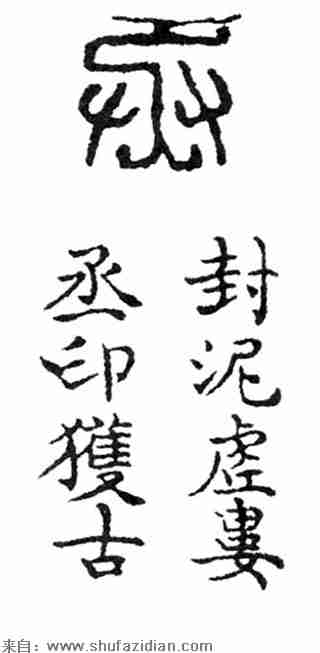 丞
封泥虛婁
丞印獲古
来自：www.shufazidian.com